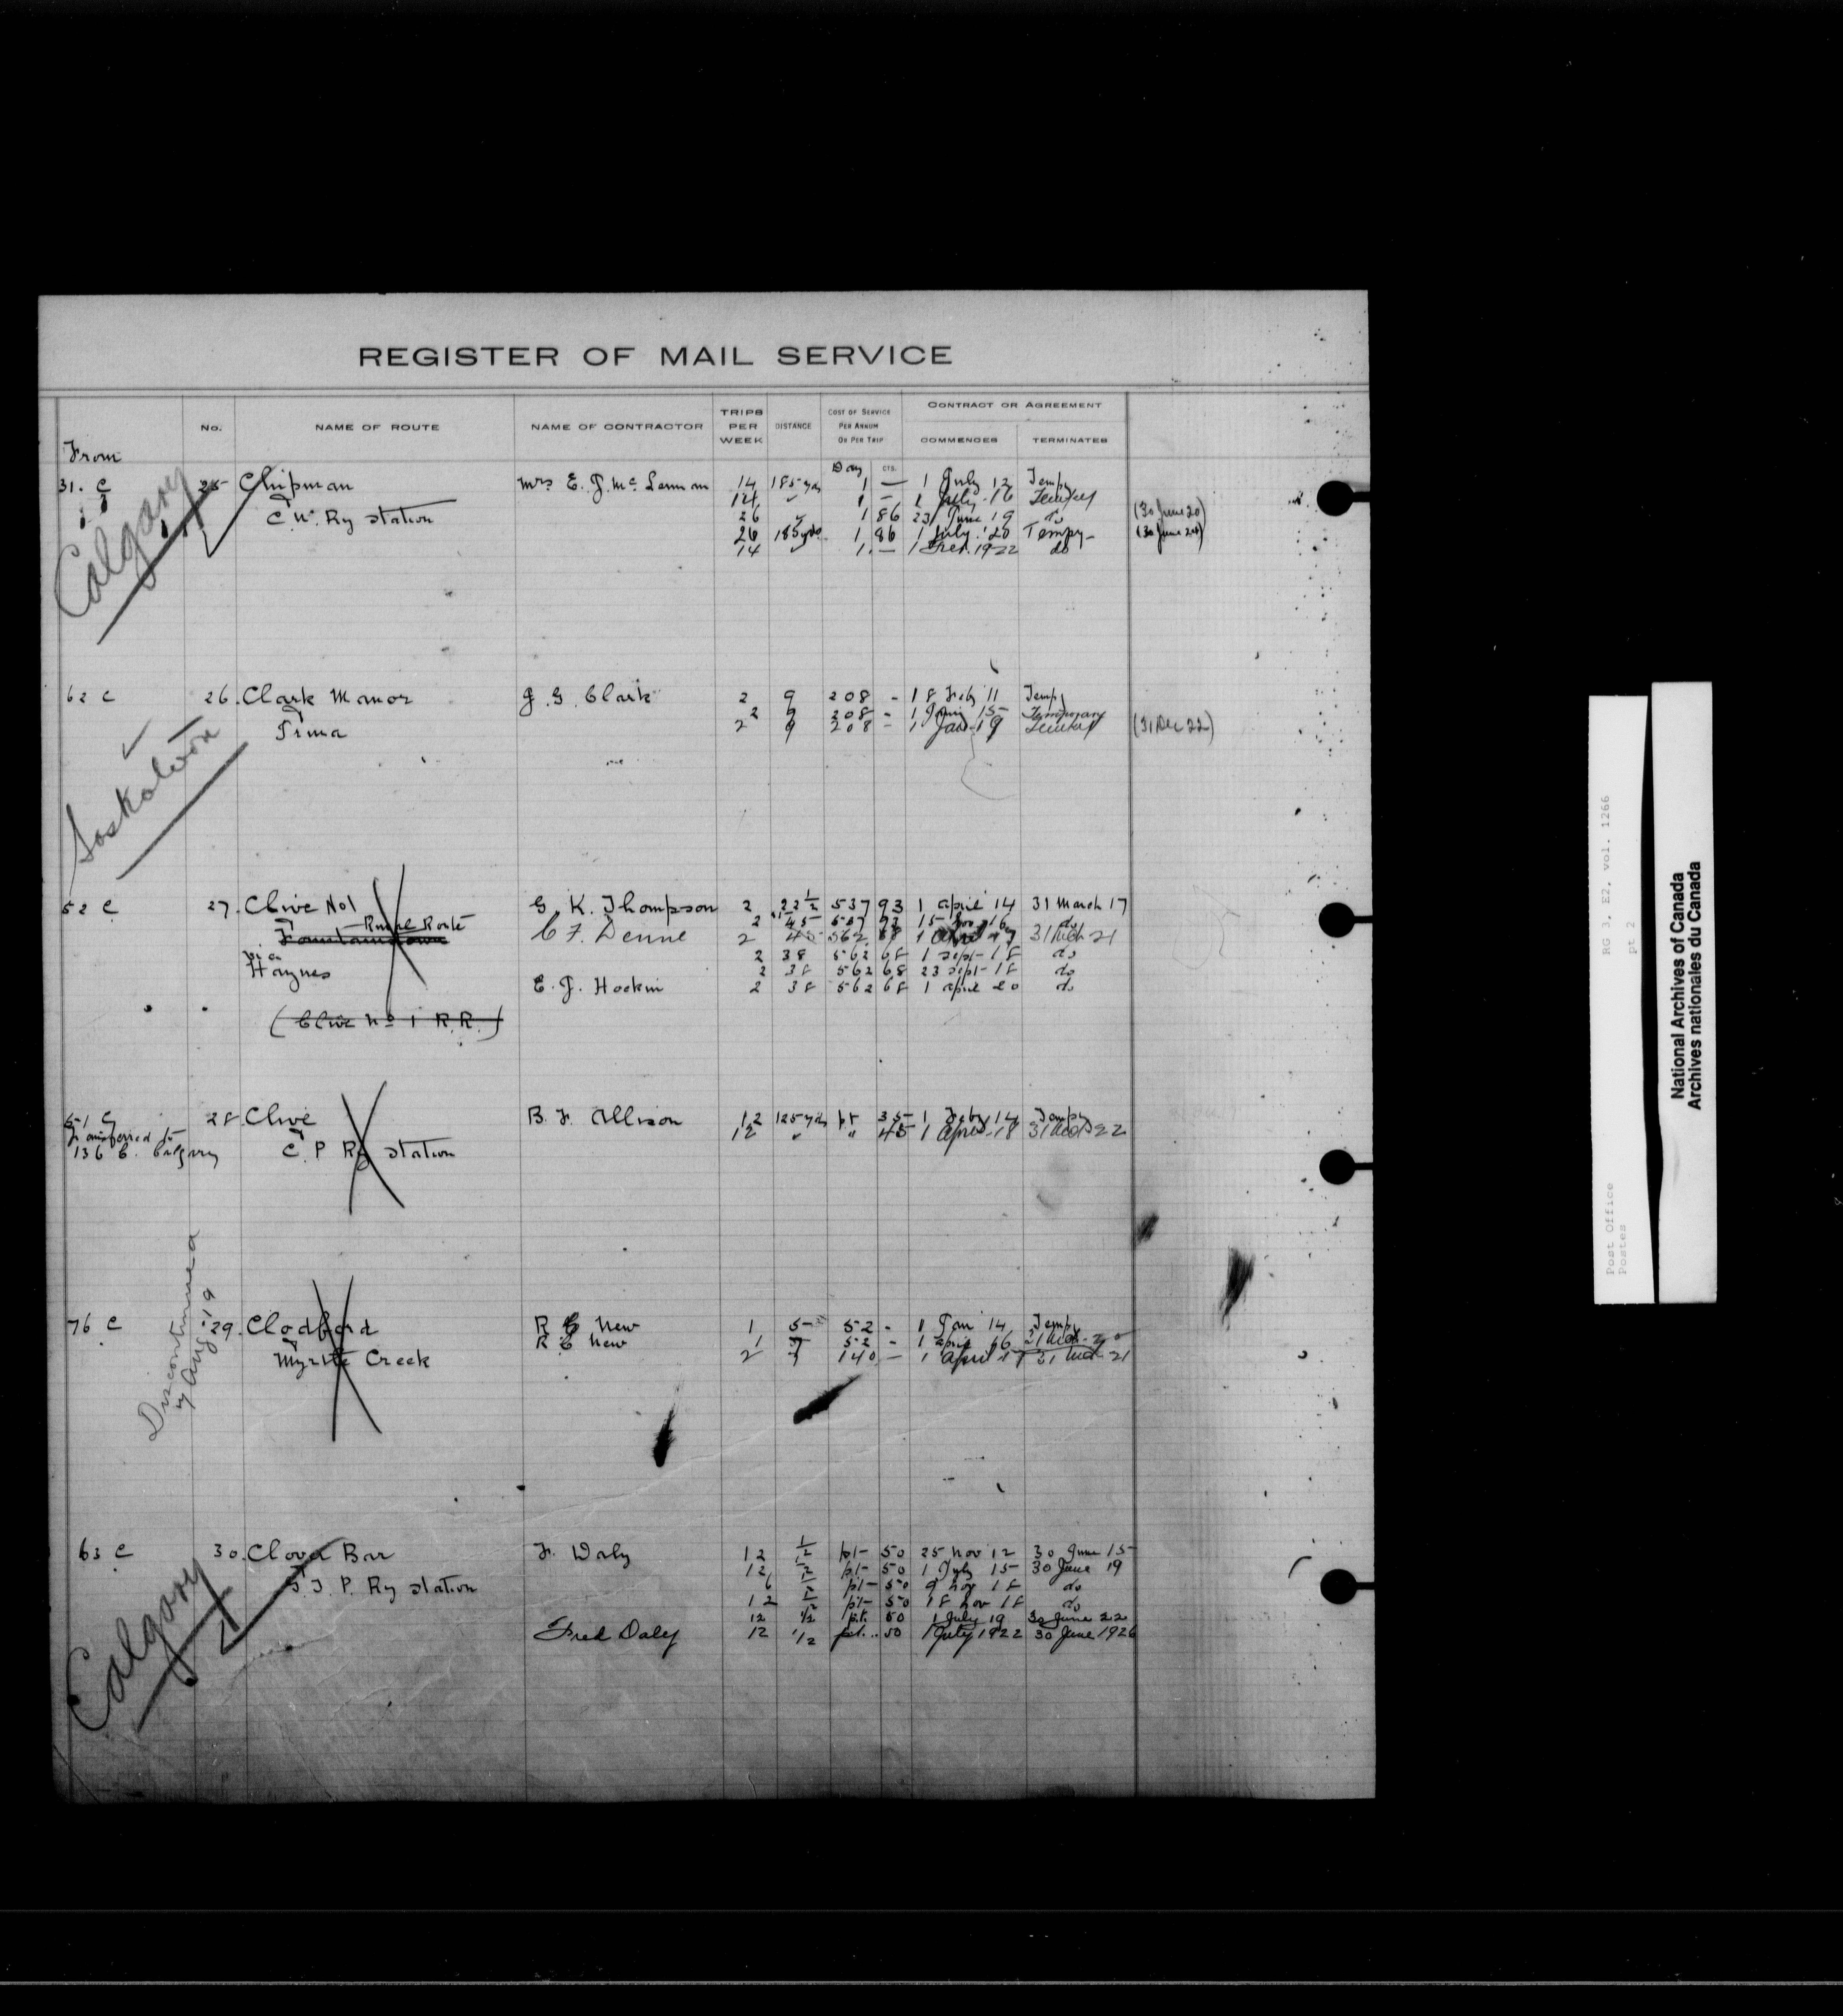 REGISTER OF MAIL SERVICE
From
No.
NAME OF ROUTE
NAME OF CONTRACTOR
TRIPS PER WEEK
DISTANCE
COST OF SERVICE PER ANNUM OR PER TRIP
CONTRACT OR AGREEMENT
COMMENCES
TERMINATES
Day cts.
31. C 25 Chipman Mrs E. J. McLennan 14 185 yds 1 — 1 July 12 Tempy
14 1 - 1 July 16 Tempy
C. N. Ry station 26 1 86 23 June 19 do (30 June 20)
26 185 yds 1 86 1 July '20 Tempy (30 June 20)
14 1. — 1 1922 do
Calgary
62 C 26. Clark Manor J. G. Clark 2 9 208 - 18 Feby 11 Tempy
2 9 208 - 1 15 Temporary
2 9 208 - 1 Jan 19 (31 Dec 22)
Saskatoon
52 C 27. Clive No1 G. K. Thompson 2 22 1/2 537 93 1 April 14 31 March 17
Rural Route 2 45 537 93 15 Nov 16 do
C. F. Denne 2 45 562 68 1 31 Mch 21
via
2 38 562 68 1 Sept 18 do
Haynes 2 38 562 68 23 Sept 18 do
E. J. Hockin 2 38 562 68 1 April 20 do
(Clive No 1 R.R.)
51 C 28. Clive B. F. Allison 12 125 yds pt 35 1 Feby 14 Tempy
Transferred to 12 " 45 1 April 18 31 22
136 C. Calgary C. P Ry station
Discontinued
Aug '19
76 C 29. Clodford R C New 1 5 52 - 1 Jan 14 Tempy
R C New 1 7 52 - 1 April 16 31
Myrtle Creek 2 7 140 — 1 April 31 21
63 C 30. Clover Bar F. Daly 12 1/2 pt 50 25 Nov 12 30 June 15
12 1/2 pt 50 1 July 15 30 June 19
G. T. P. Ry station 6 1/2 pt 50 9 Nov 18 do
12 1/2 pt 50 18 Nov 18 do
12 1/2 p.t. 50 1 July 19 30 June 22
Fred Daly 12 1/2 pt. 50 1 July 1922 30 June 1926
Calgary
RG 3, E2, vol. 1266
pt 2
Post Office
Postes
National Archives of Canada
Archives nationales du Canada